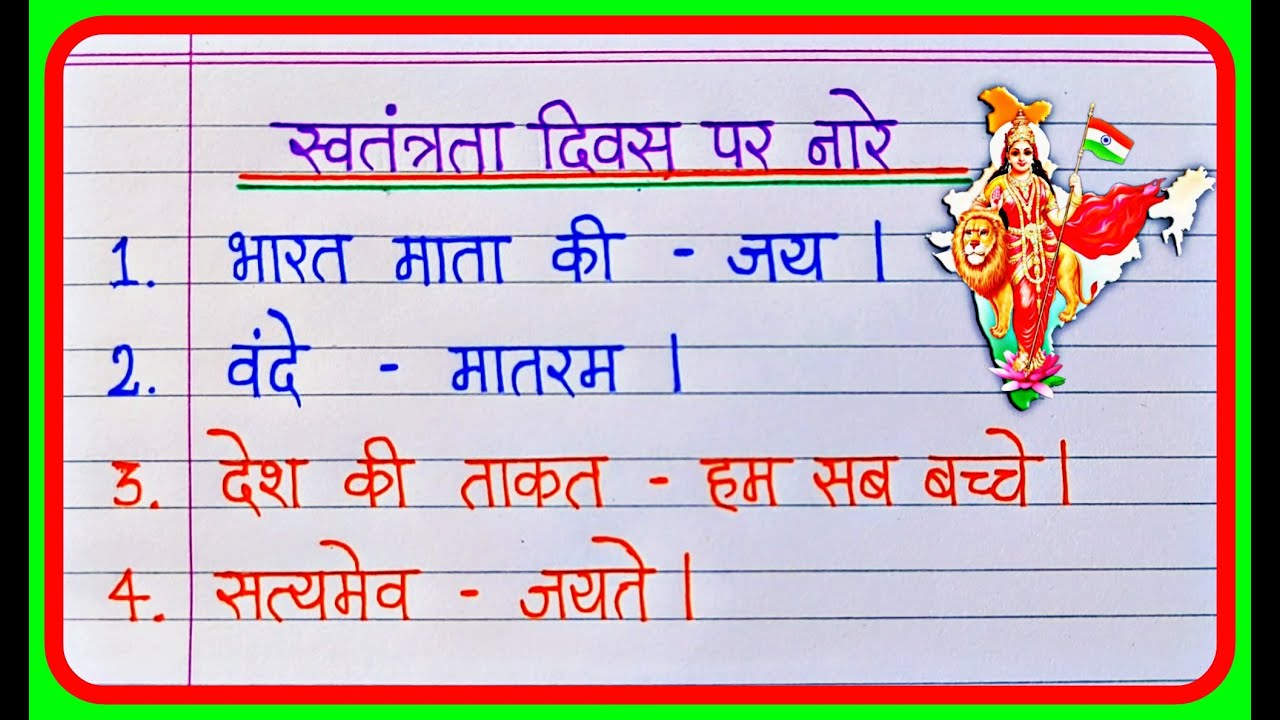 स्वतंत्रता दिवस पर नारे
1. भारत माता की - जय ।
2. वंदे - मातरम ।
3. देश की ताकत - हम सब बच्चे।
4. सत्यमेव - जयते।